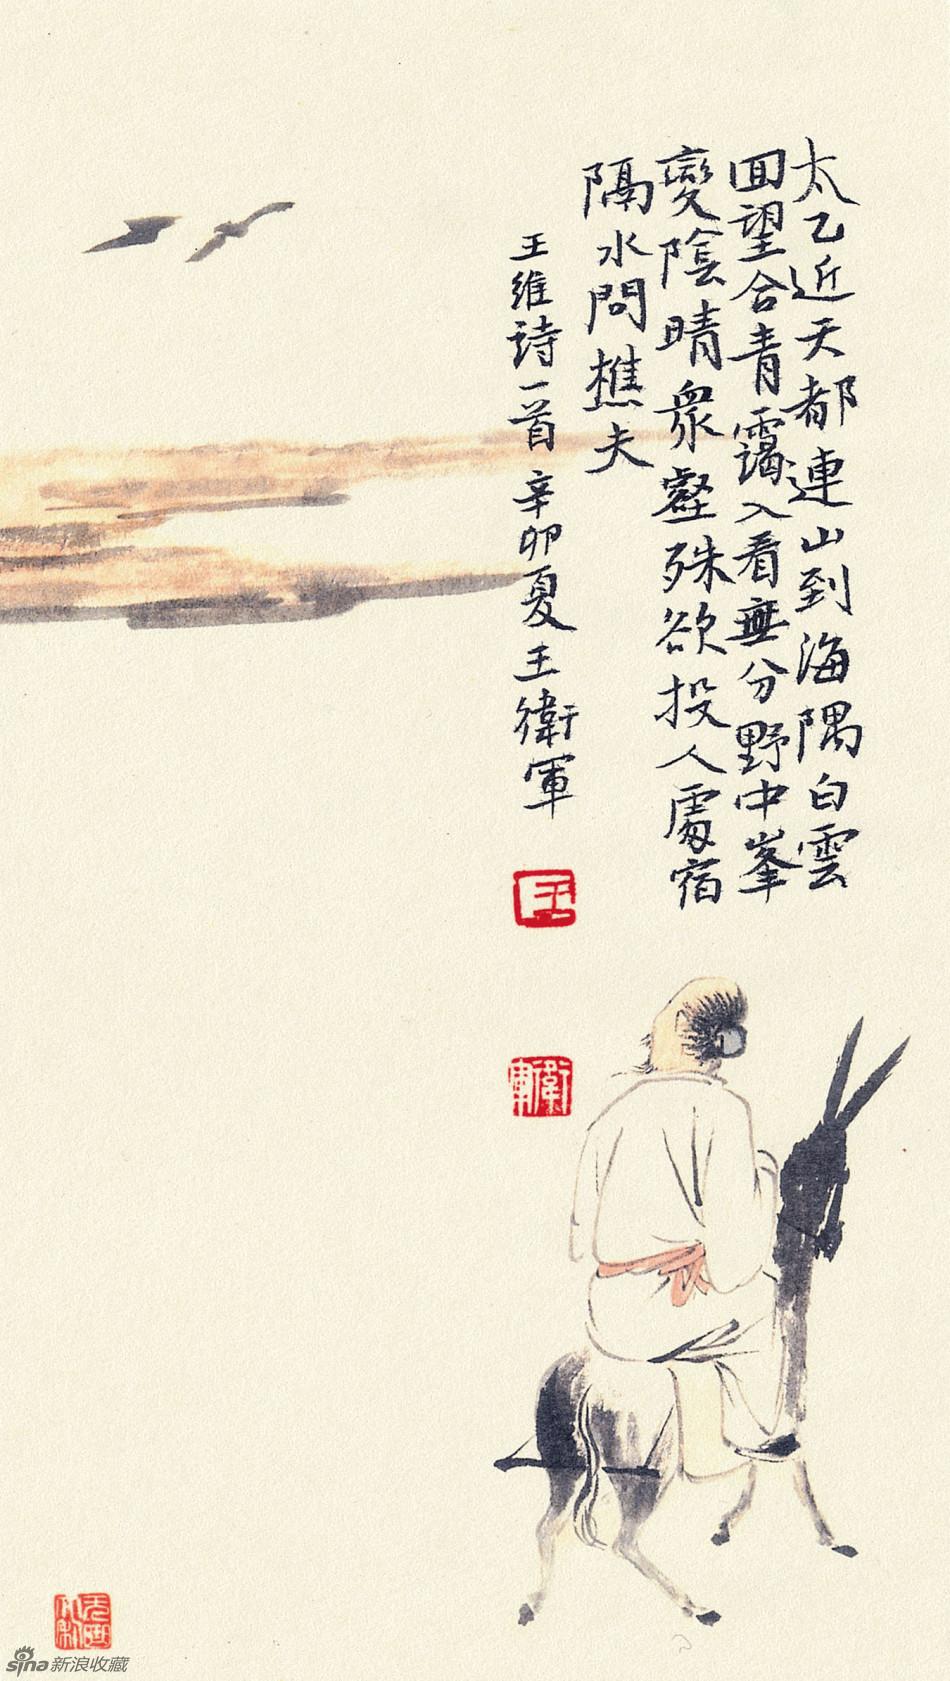 太乙近天都連山到海隅白雲
回望合青靄入看無分野中峯
變陰晴衆壑殊欲投人處宿
隔水問樵夫
王維詩一首 辛卯夏 王衛軍
王
衛軍
sina新浪收藏